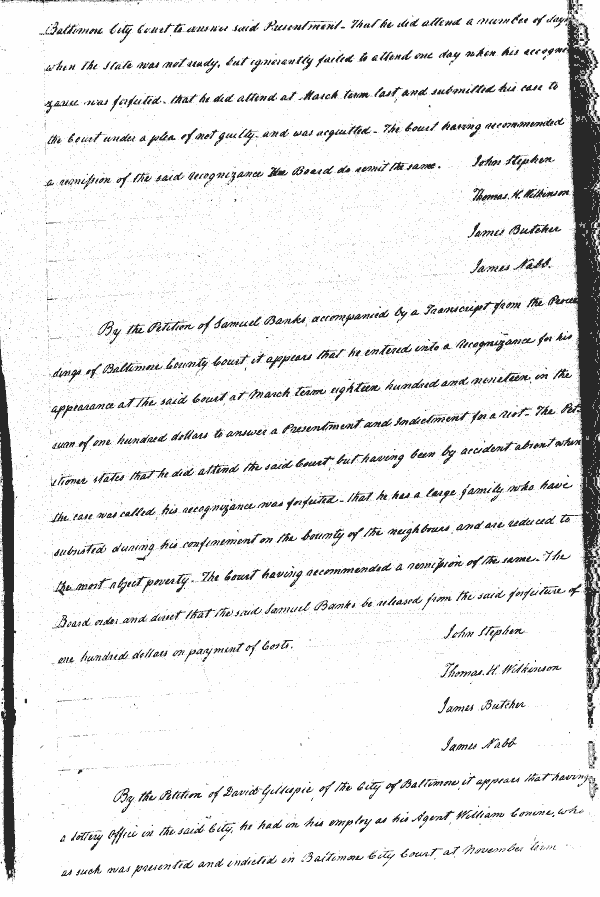 Baltimore City Court to answer said Presentment - That he did attend a number of days
when the state was not ready, but ignorantly failed to attend one day when his recogni
zance was forfeited - that he did attend at March term last, and submitted his case to
the Court under a plea of not guilty - and was acquitted - The Court having recommended
a remission of the said recognizance The Board do remit the same.
John Stephen
Thomas. H. Wilkinson
James Butcher
James Nabb.
By the Petition of Samuel Banks, accompanied by a Transcript from the Procee
dings of Baltimore County Court, it appears that he entered into a recognizance for his
appearance at the said Court at March term eighteen hundred and nineteen, in the
sum of one hundred dollars to answer a Presentment and Indictment for a riot - The Pet-
itioner states that he did attend the said Court, but having been by accident absent when
the case was called, his recognizance was forfeited - that he has a large family who have
subsisted during his confinement on the bounty of the neighbours, and are reduced to
the most abject poverty - The Court having recommended a remission of the same - The
Board order and direct that the said Samuel Banks be released from the said forfeiture of
one hundred dollars on payment of Costs.
John Stephen
Thomas. H. Wilkinson
James Butcher
James Nabb
By the Petition of David Gillespie, of the City of Baltimore, it appears that having
a lottery Office in the said City, he had in his employ as his Agent, William Conine, who
as such was presented and indicted in Baltimore City Court at November term